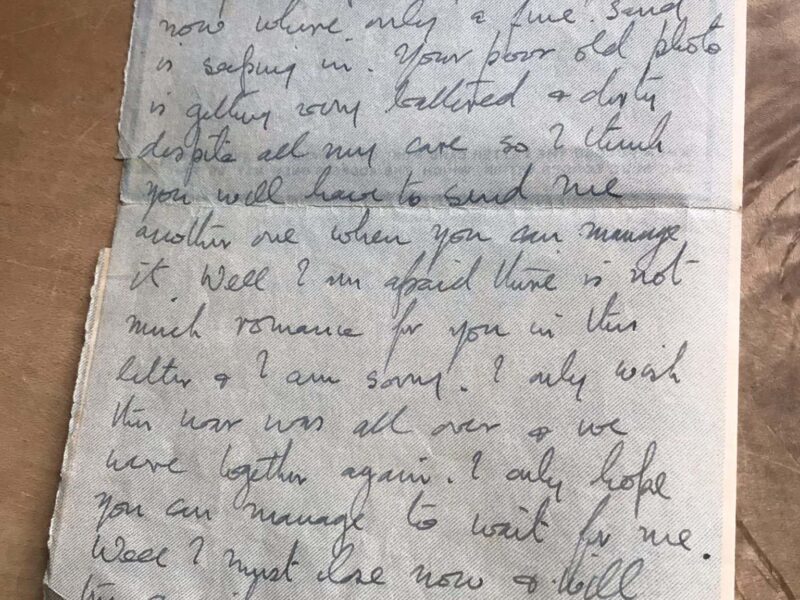 now where only a fine sand
is seeping in. Your poor old photo
is getting very battered & dirty
despite all my care so I think
you will have to send me
another one when you can manage
it Well I am afraid there is not
much romance for you in this
letter & I am sorry. I only wish
this war was all over & we
were together again. I only hope
you can manage to wait for me.
Well I must close now & will